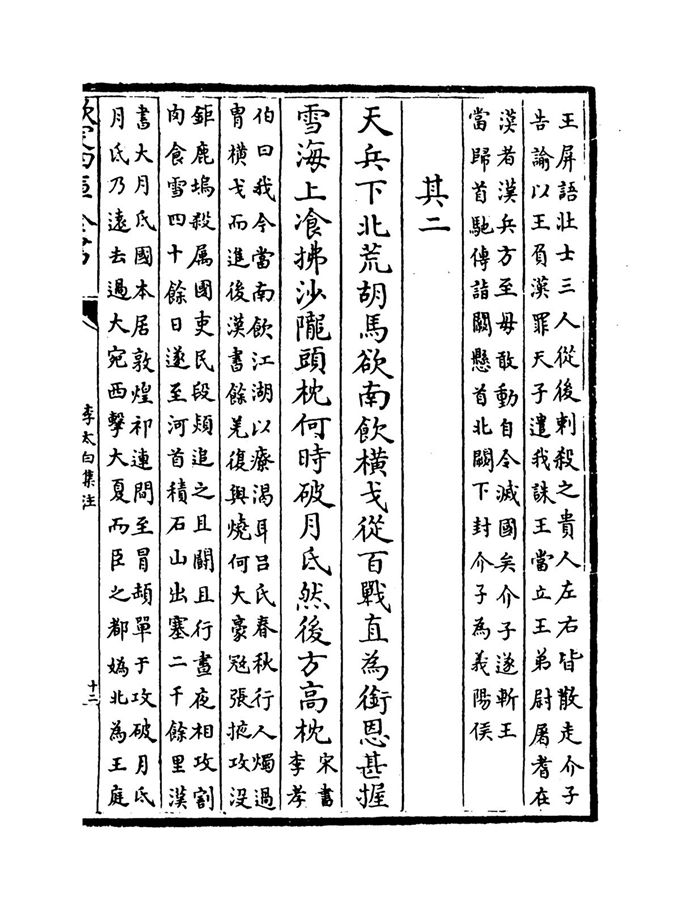 王屏語壯士三人從後刺殺之貴人左右皆散走介子
告諭以王負漢罪天子遣我誅王當立王弟尉屠耆在
漢者漢兵方至毋敢動自令滅國矣介子遂斬王
當歸首馳傳詣闕懸首北闕下封介子為義陽侯
其二
天兵下北荒胡馬欲南飲橫戈從百戰直為銜恩甚握
雪海上飡拂沙隴頭枕何時破月氏然後方高枕
宋書
李孝
伯曰我今當南飲江湖以療渴耳吕氏春秋行人燭過
胄橫戈而進後漢書餘羌復與燒何大豪冦張掖攻沒
鉅鹿塢殺属國吏民段熲追之且鬬且行晝夜相攻割
肉食雪四十餘日遂至河首積石山出塞二千餘里漢
書大月氏國本居敦煌祁連間至冒頓單于攻破月氏
月氏乃遠去過大宛西擊大夏而臣之都媯北為王庭
欽定四庫全書
李太白集注
十二